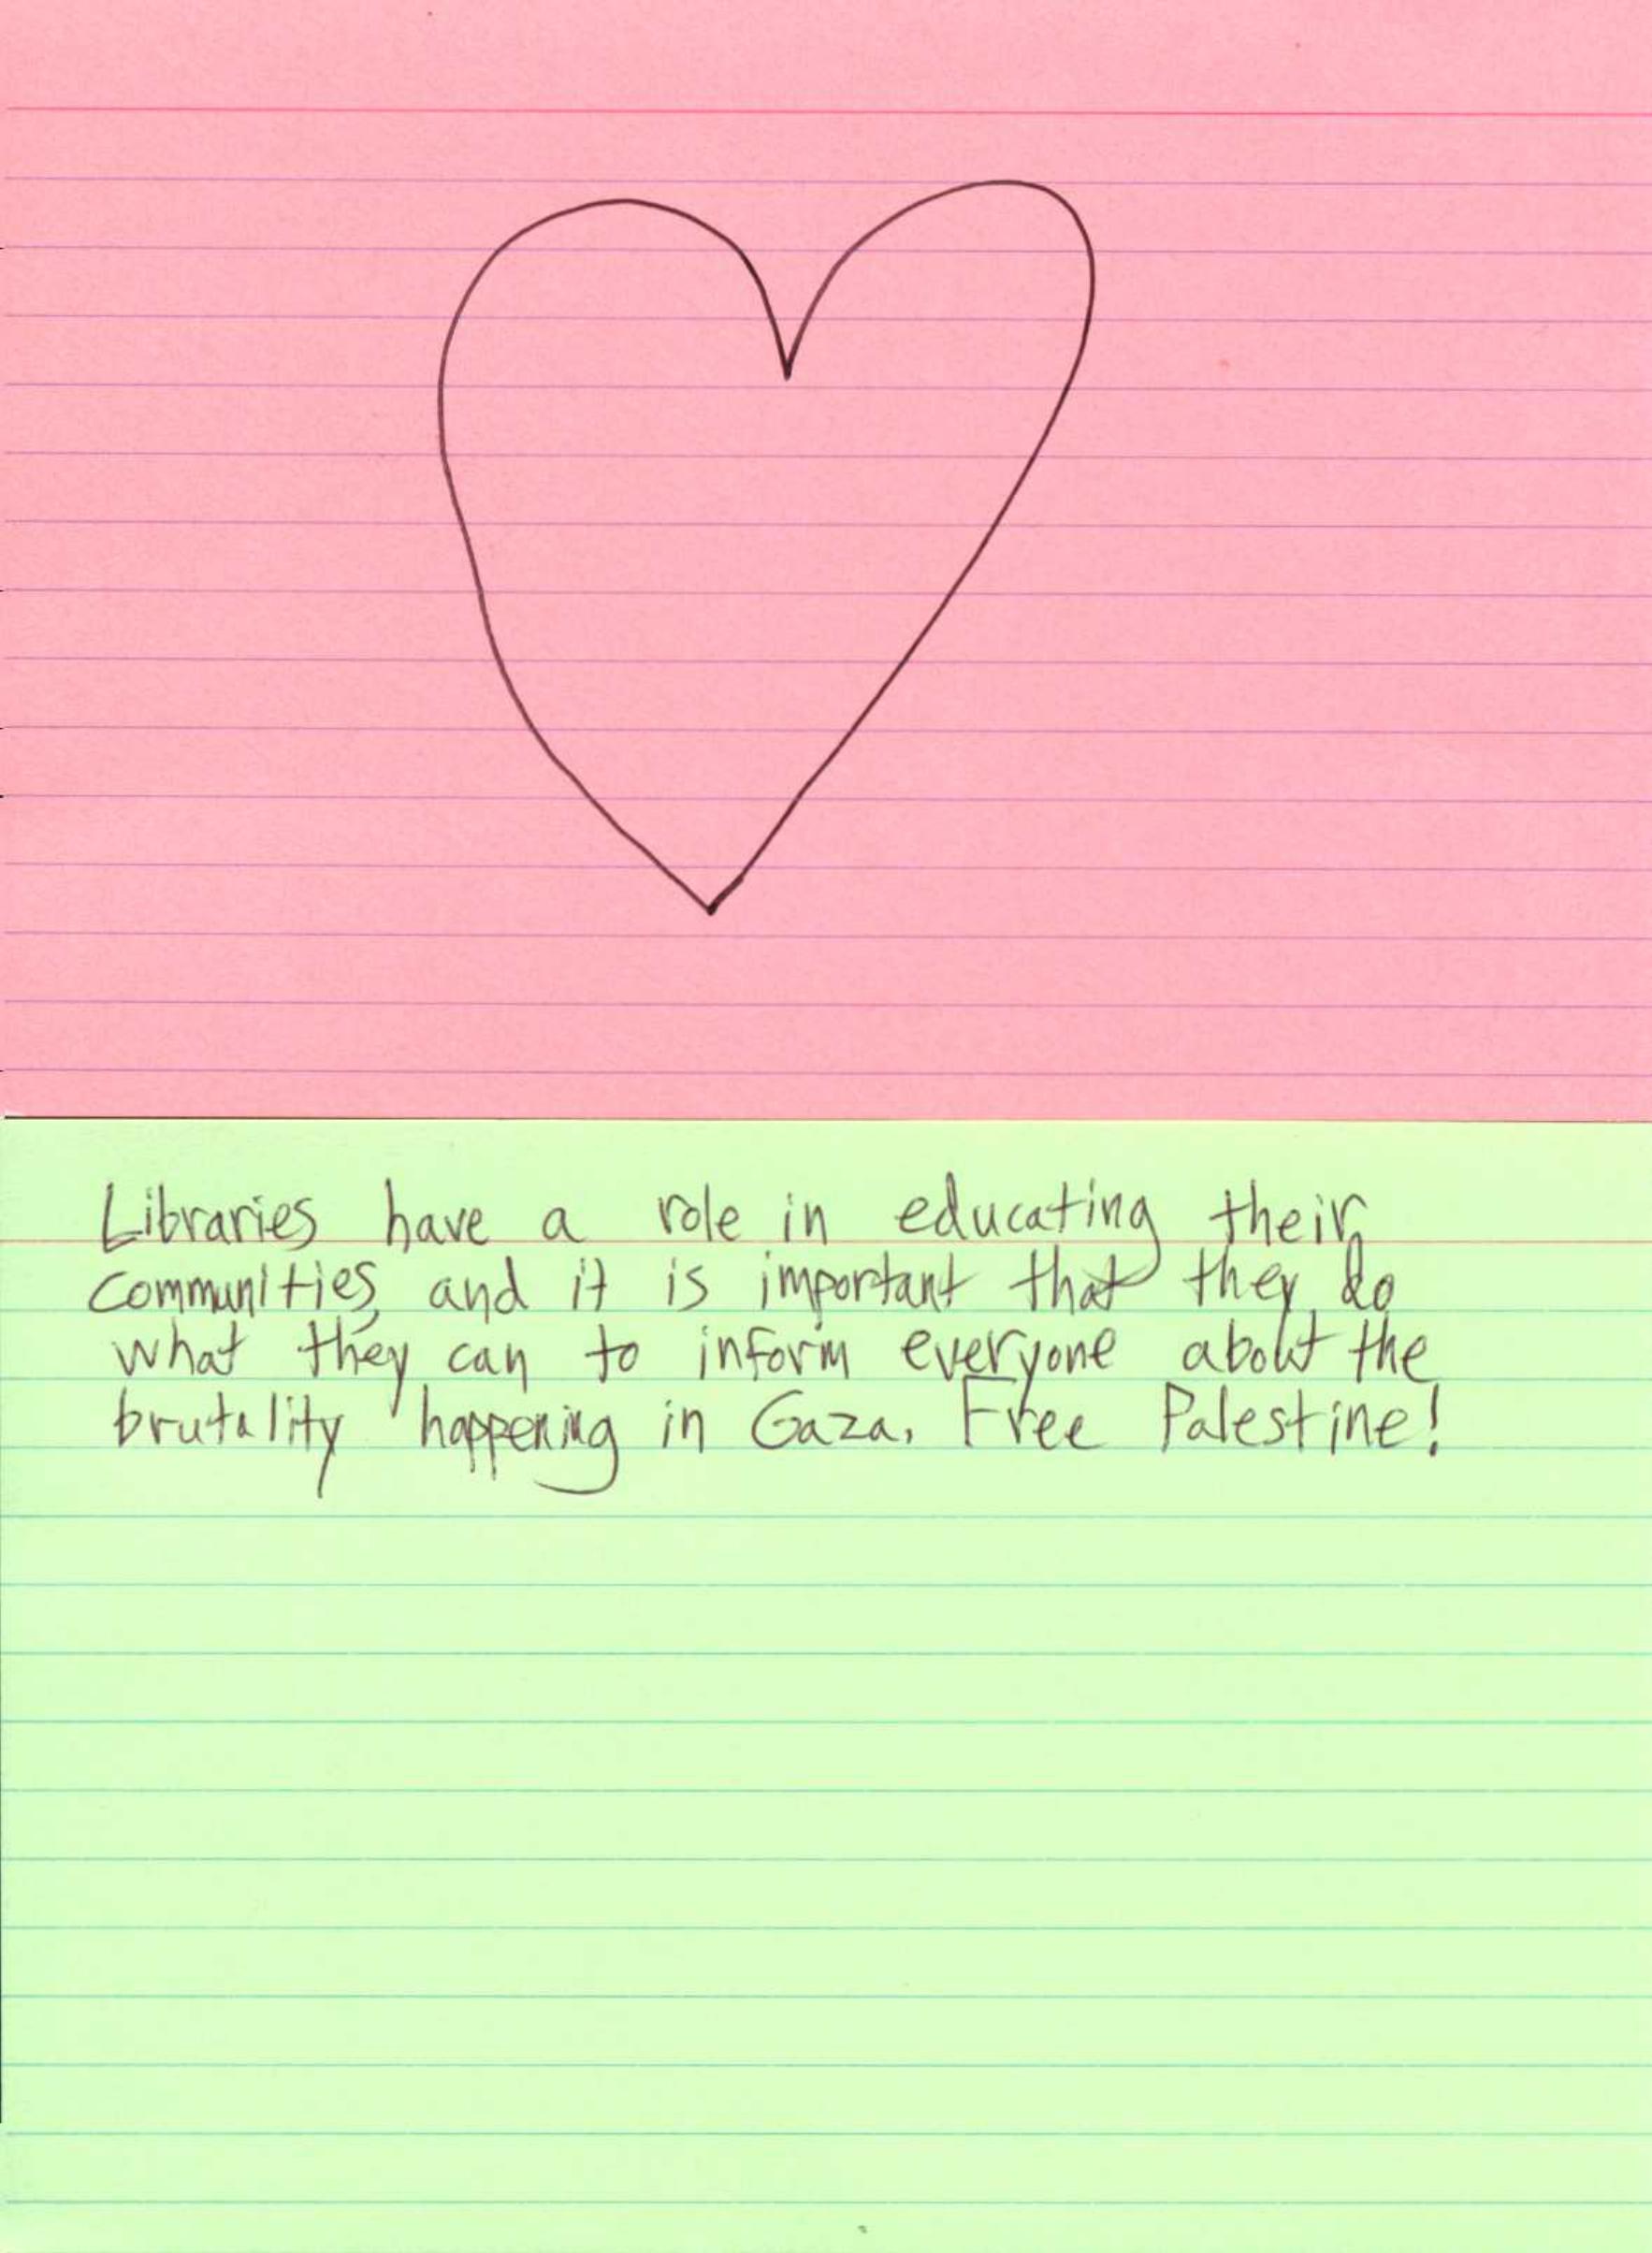 Libraries have a role in educating their
communities, and it is important that they do
what they can to inform everyone about the
brutality happening in Gaza. Free Palestine!